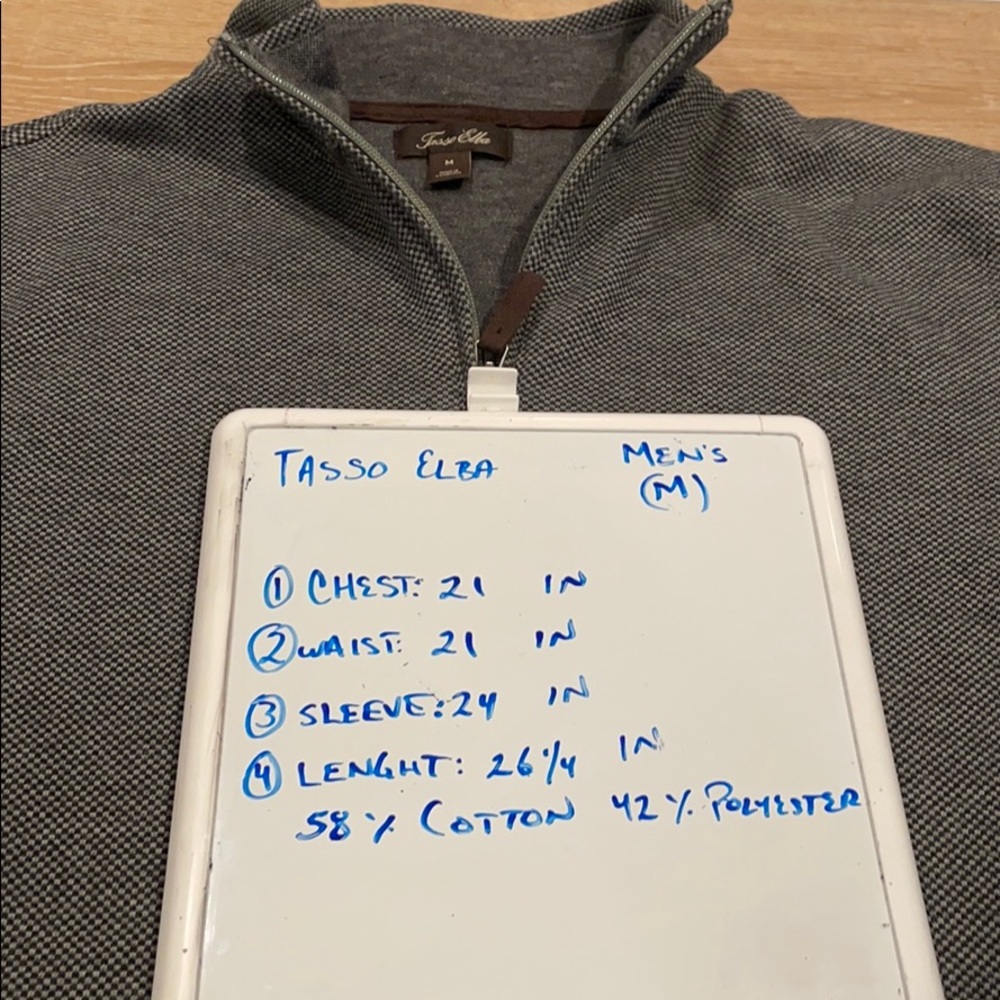 Tasso Elba
M
TASSO ELBA MEN'S
(M)
① CHEST: 21 IN
② WAIST: 21 IN
③ SLEEVE: 24 IN
④ LENGHT: 26 1/4 IN
58% COTTON 42% POLYESTER